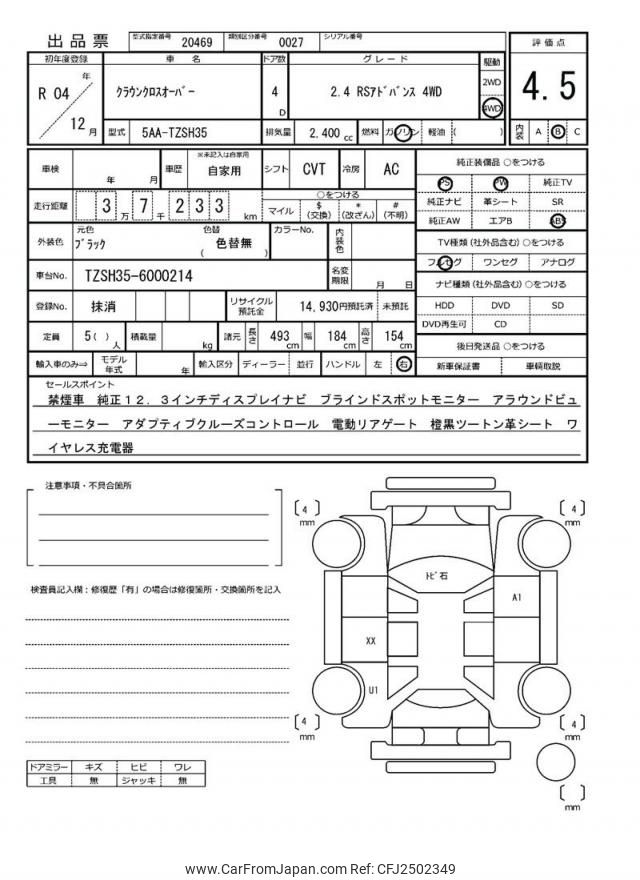 出品票 型式指定番号 20469 類別区分番号 0027 シリアル番号
初年度登録 車 名 ドア数 グレード 駆動 評価点
R 04 年 12 月 クラウンクロスオーバー 4 D 2.4 RSアドバンス 4WD 2WD 4WD 4.5
型式 5AA-TZSH35 排気量 2,400 cc 燃料 ガソリン 軽油 ( ) 内装 A B C
車検 年 月 車歴 ※未記入は自家用 自家用 シフト CVT 冷房 AC
走行距離 3 万 7 千 2 3 3 km ○をつける マイル $ (交換) * (改ざん) # (不明)
外装色 元色 ブラック 色替 ( 色替無 ) カラーNo. 内装色
車台No. TZSH35-6000214 名変期限 月 日
登録No. 抹消 リサイクル預託金 14,930円預託済 未預託
定員 5( ) 人 積載量 kg 諸元 長さ 493 cm 幅 184 cm 高さ 154 cm
輸入車のみ⇒ モデル年式 年 輸入区分 ディーラー 並行 ハンドル 左 右
純正装備品 ○をつける
PS PW 純正TV
純正ナビ 革シート SR
純正AW エアB ABS
TV種類 (社外品含む) ○をつける
フルセグ ワンセグ アナログ
ナビ種類 (社外品含む) ○をつける
HDD DVD SD
DVD再生可 CD
後日発送品 ○をつける
新車保証書 車輌取説
セールスポイント
禁煙車 純正12.3インチディスプレイナビ ブラインドスポットモニター アラウンドビュ
ーモニター アダプティブクルーズコントロール 電動リアゲート 橙黒ツートン革シート ワ
イヤレス充電器
注意事項・不具合箇所
検査員記入欄:修復歴「有」の場合は修復箇所・交換箇所を記入
ドアミラー キズ ヒビ ワレ
工具 無 ジャッキ 無
[ 4 ] mm [ 4 ] mm
トビ石
A1
XX
U1
[ 4 ] mm [ 4 ] mm
[ ] mm
www.CarFromJapan.com Ref: CFJ2502349